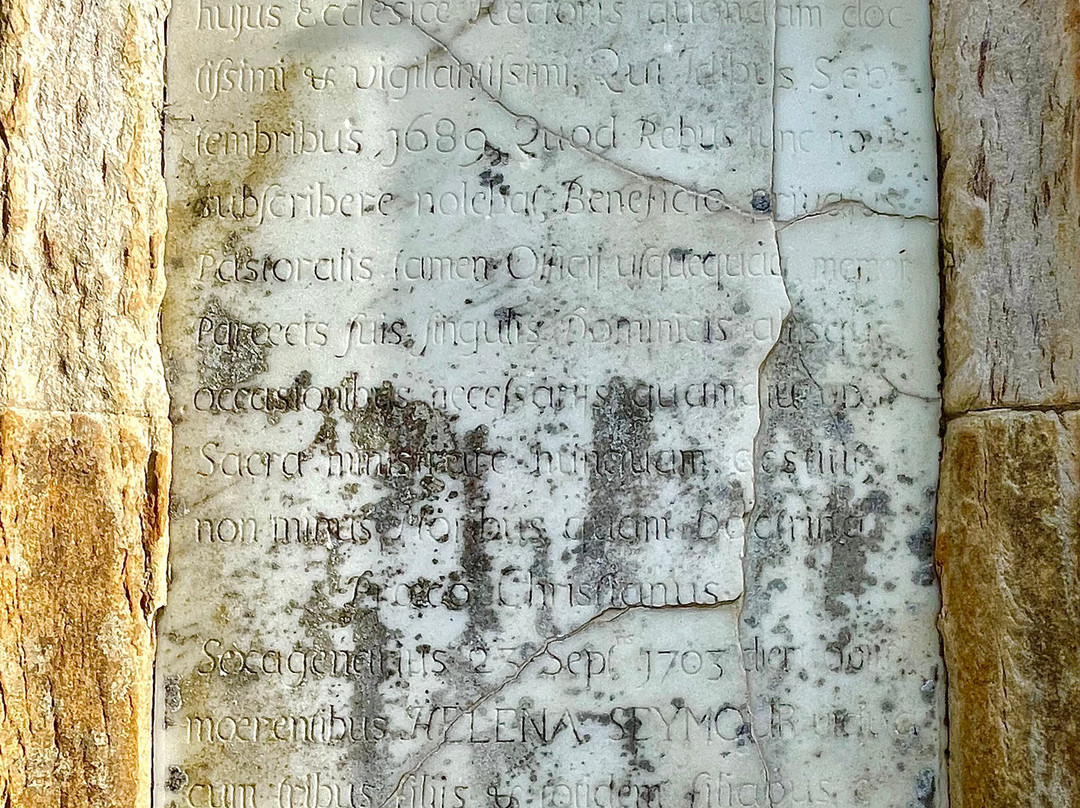 hujus Ecclesiæ Rectoris quondam doc-
tiſsimi & vigilantiſsimi, Qui Idibus Sep-
tembribus 1689 Quod Rebus tunc novis
subſcribere nolebat Beneficio
Pastoralis tamen Officij uſquequaq memor
Parœcis ſuis ſingulis Dominicis alijsque
occasionibus neceſsarijs quamdiu
Sacra ministrare nunquam destitit
non minus Moribus quam Doctrina
Christianus
Sexagenarius 23 Sept 1703
mœrentibus HELENA SEYMOUR
cum tribus filijs & totidem filiabus